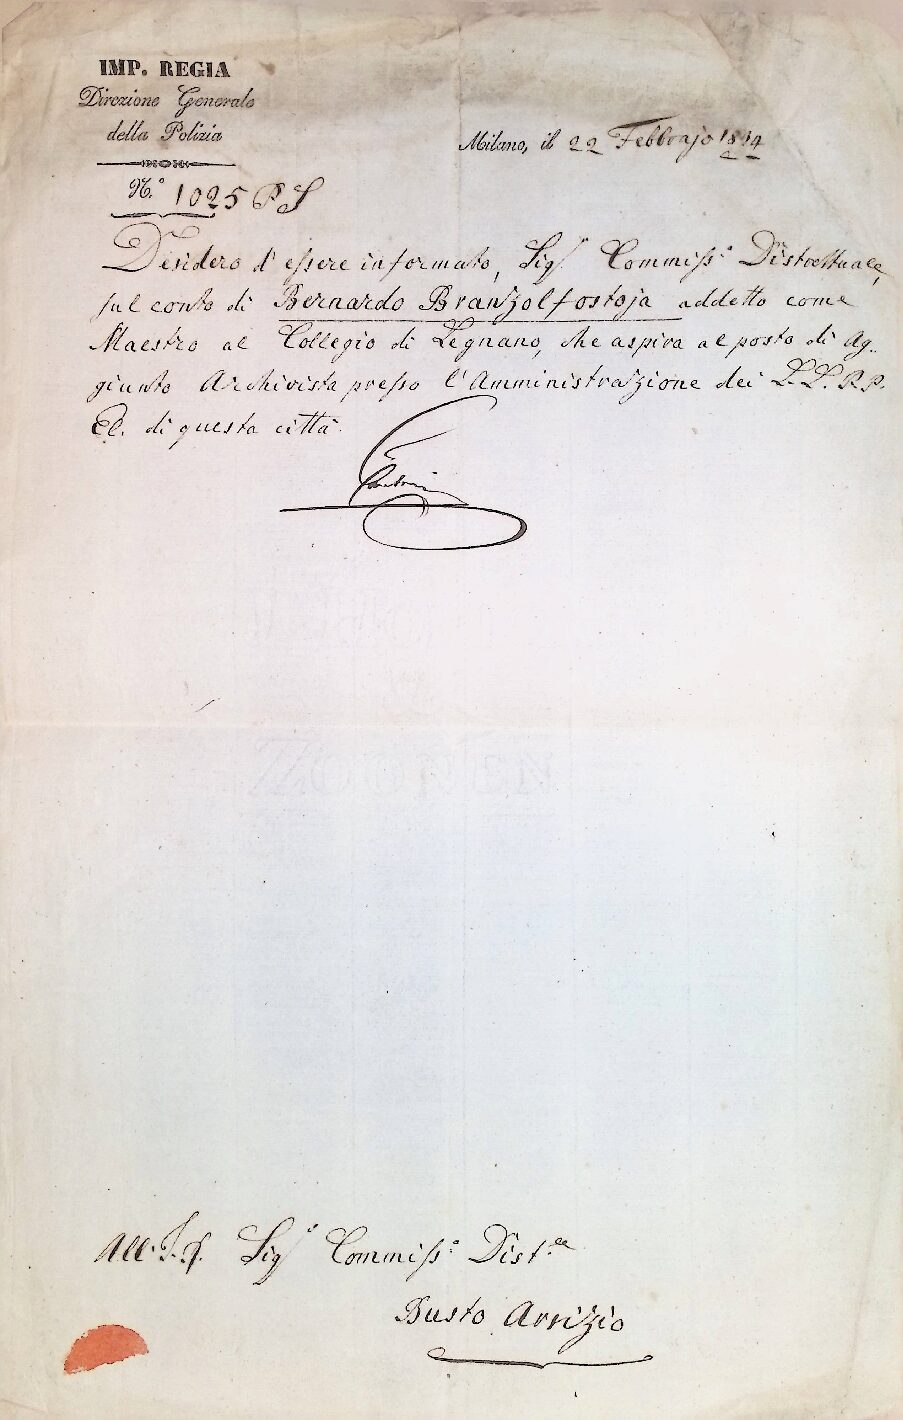 IMP. REGIA
Direzione Generale
della Polizia
Milano, il 22 Febbrajo 1844
N.° 1025 P S
Desidero d'essere informato, Sig.r Commiss.° Distrettuale,
sul conto di Bernardo Branzolfostoja addetto come
Maestro al Collegio di Legnano, che aspira al posto di Ag-
giunto Archivista presso l'Amministrazione dei L. L. P. P.
El. di questa città.
All' I. R. Sig.r Commiss.° Dist.le
Busto Arsizio